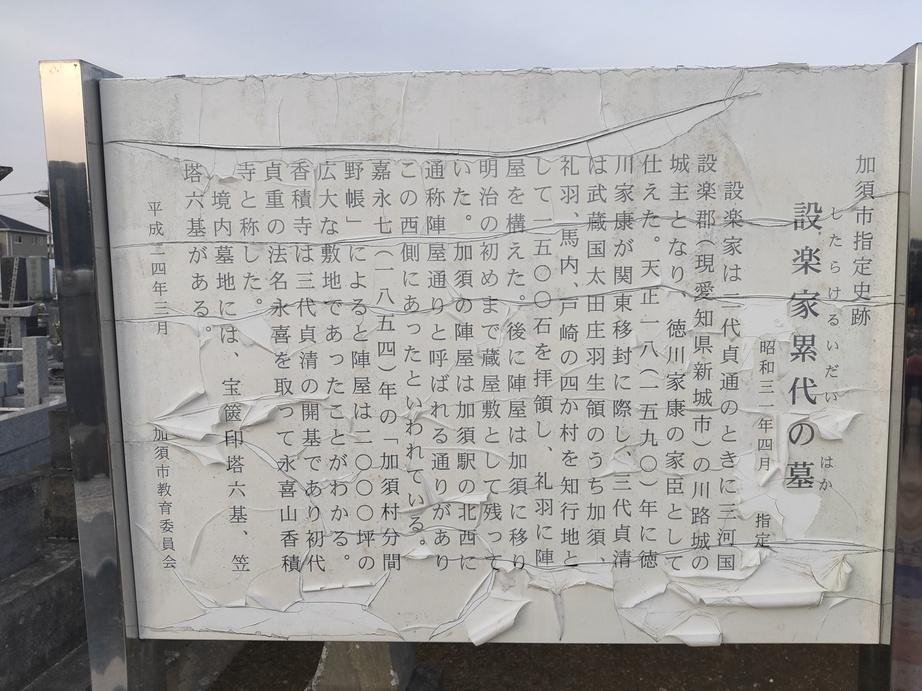 加須市指定史跡
したらけるいだい　はか
設楽家累代の墓
昭和三一年四月　指定
設楽家は二代貞通のときに三河国
設楽郡（現愛知県新城市）の川路城の
城主となり、徳川家康の家臣として
仕えた。天正一八（一五九〇）年に徳
川家康が関東移封に際し、三代貞清
は武蔵国太田庄羽生領のうち加須、
礼羽、馬内、戸崎の四か村を知行地と
して一五〇〇石を拝領し、礼羽に陣
屋を構えた。後に陣屋は加須に移り
明治の初めまで蔵屋敷として残って
いた。加須の陣屋は加須駅の北西に
通称陣屋通りと呼ばれる通りがあり
この西側にあったといわれている。
嘉永七（一八五四）年の「加須村分間
野帳」によると陣屋は二〇〇〇坪の
広大な敷地であったことがわかる。
香積寺は三代貞清の開基であり初代
貞重の法名永喜を取って永喜山香積
寺と称した。
境内墓地には、宝篋印塔六基、笠
塔六基がある。
平成二四年三月
加須市教育委員会